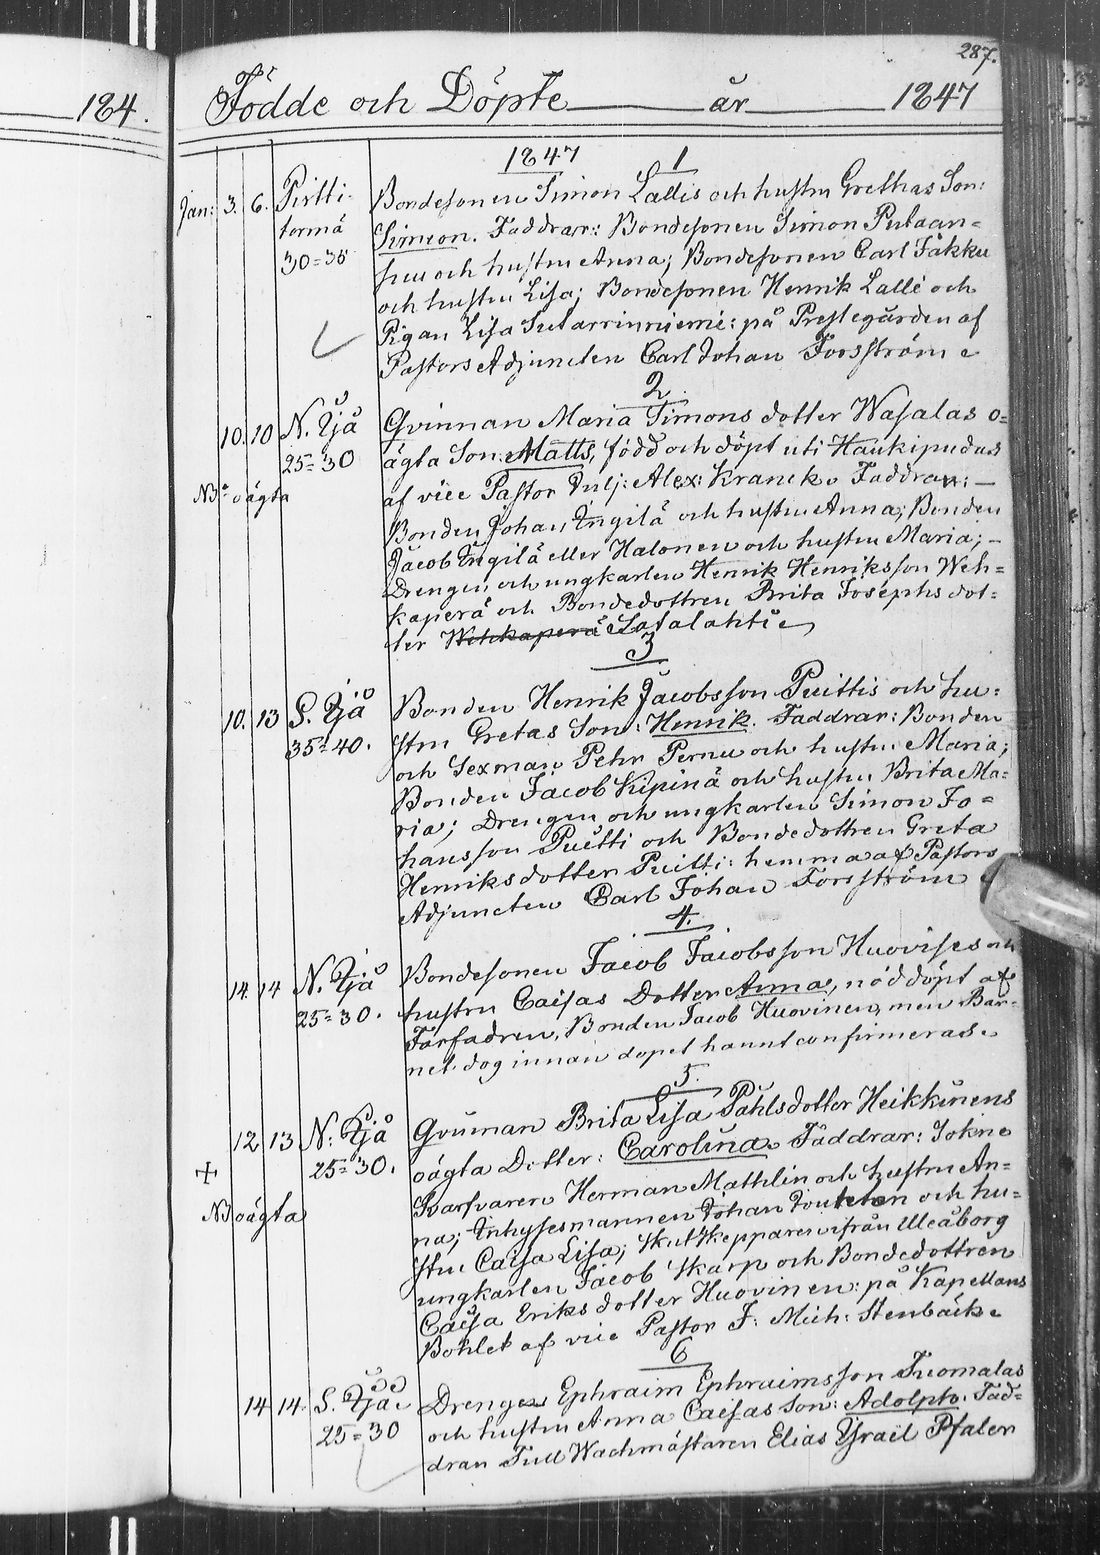 287.
184.
Födde och Döpte år 1847
1847
1
Jan: 3. 6. Pirtti- Bondesonen Simon Lallis och hustru Grethas Son:
tormä Simeon. Faddrar: Bondesonen Simon Pulaan=
30=35 och hustru Anna; Bondesonen Carl Jäkku
och hustru Lisa; Bondesonen Henrik Lalli och
Pigan Lisa på Prestegården af
Pastors Adjuncten Carl Johan Forsström
2
10. 10 N. Ijå Qvinnan Maria Simons dotter Wasalas o=
25=30 ägta Son: Matts, född och döpt uti Haukipudas
NB. oägta af vice Pastor Julj: Alex: Kranck. Faddrar: —
Bonden Johan Engilä och hustru Anna; Bonden
Jacob Engilä eller Halonen och hustru Maria; —
Drengen och ungkarlen Henrik Henriksson Weh=
kaperä och Bondedottren Brita Josephs dot=
ter Wehkaperä Satalahti
3
10. 13 S. Ijå Bonden Henrik Jacobsson Puittis och hu=
35=40. stru Gretas Son: Henrik. Faddrar: Bonden
och Sexman Pehr Pernu och hustru Maria;
Bonden Jacob Kipinä och hustru Brita Ma=
ria; Drengen och ungkarlen Simon Jo=
hansson Puitti och Bondedottren Greta
Henriksdotter Puitti: hemma af Pastors
Adjuncten Carl Johan Forsström
4.
14. 14 N. Ijå Bondesonen Jacob Jacobsson Huovises och
25=30. hustru Caisas Dotter Anna, nöddöpt af
Farfadren, Bonden Jacob Huovinen, men Bar=
net dog innan dopet hannt confirmeras.
5.
12 13 N. Ijå Qvinnan Brita Lisa Påhlsdotter Heikkinens
25=30. oägta Dotter: Carolina. Faddrar: Sokne
+ Svarfvaren Herman Mathlin och hustru An=
NB oägta na; Inhysesmannen Johan och hu=
stru Caisa Lisa; Skutskepparen ifrån Uleåborg
ungkarlen Jacob Skarp och Bondedottren
Caisa Eriks dotter Huovinen: på Kapellans
Bohlet af vice Pastor J: Mich: Stenbäck
6
14 14. S. Ijå Drengen Ephraim Ephraimsson Tuomalas
25=30 och hustru Anna Caisas Son: Adolph. Fad=
drar Tull Wachmästaren Elias Israël Pfaler